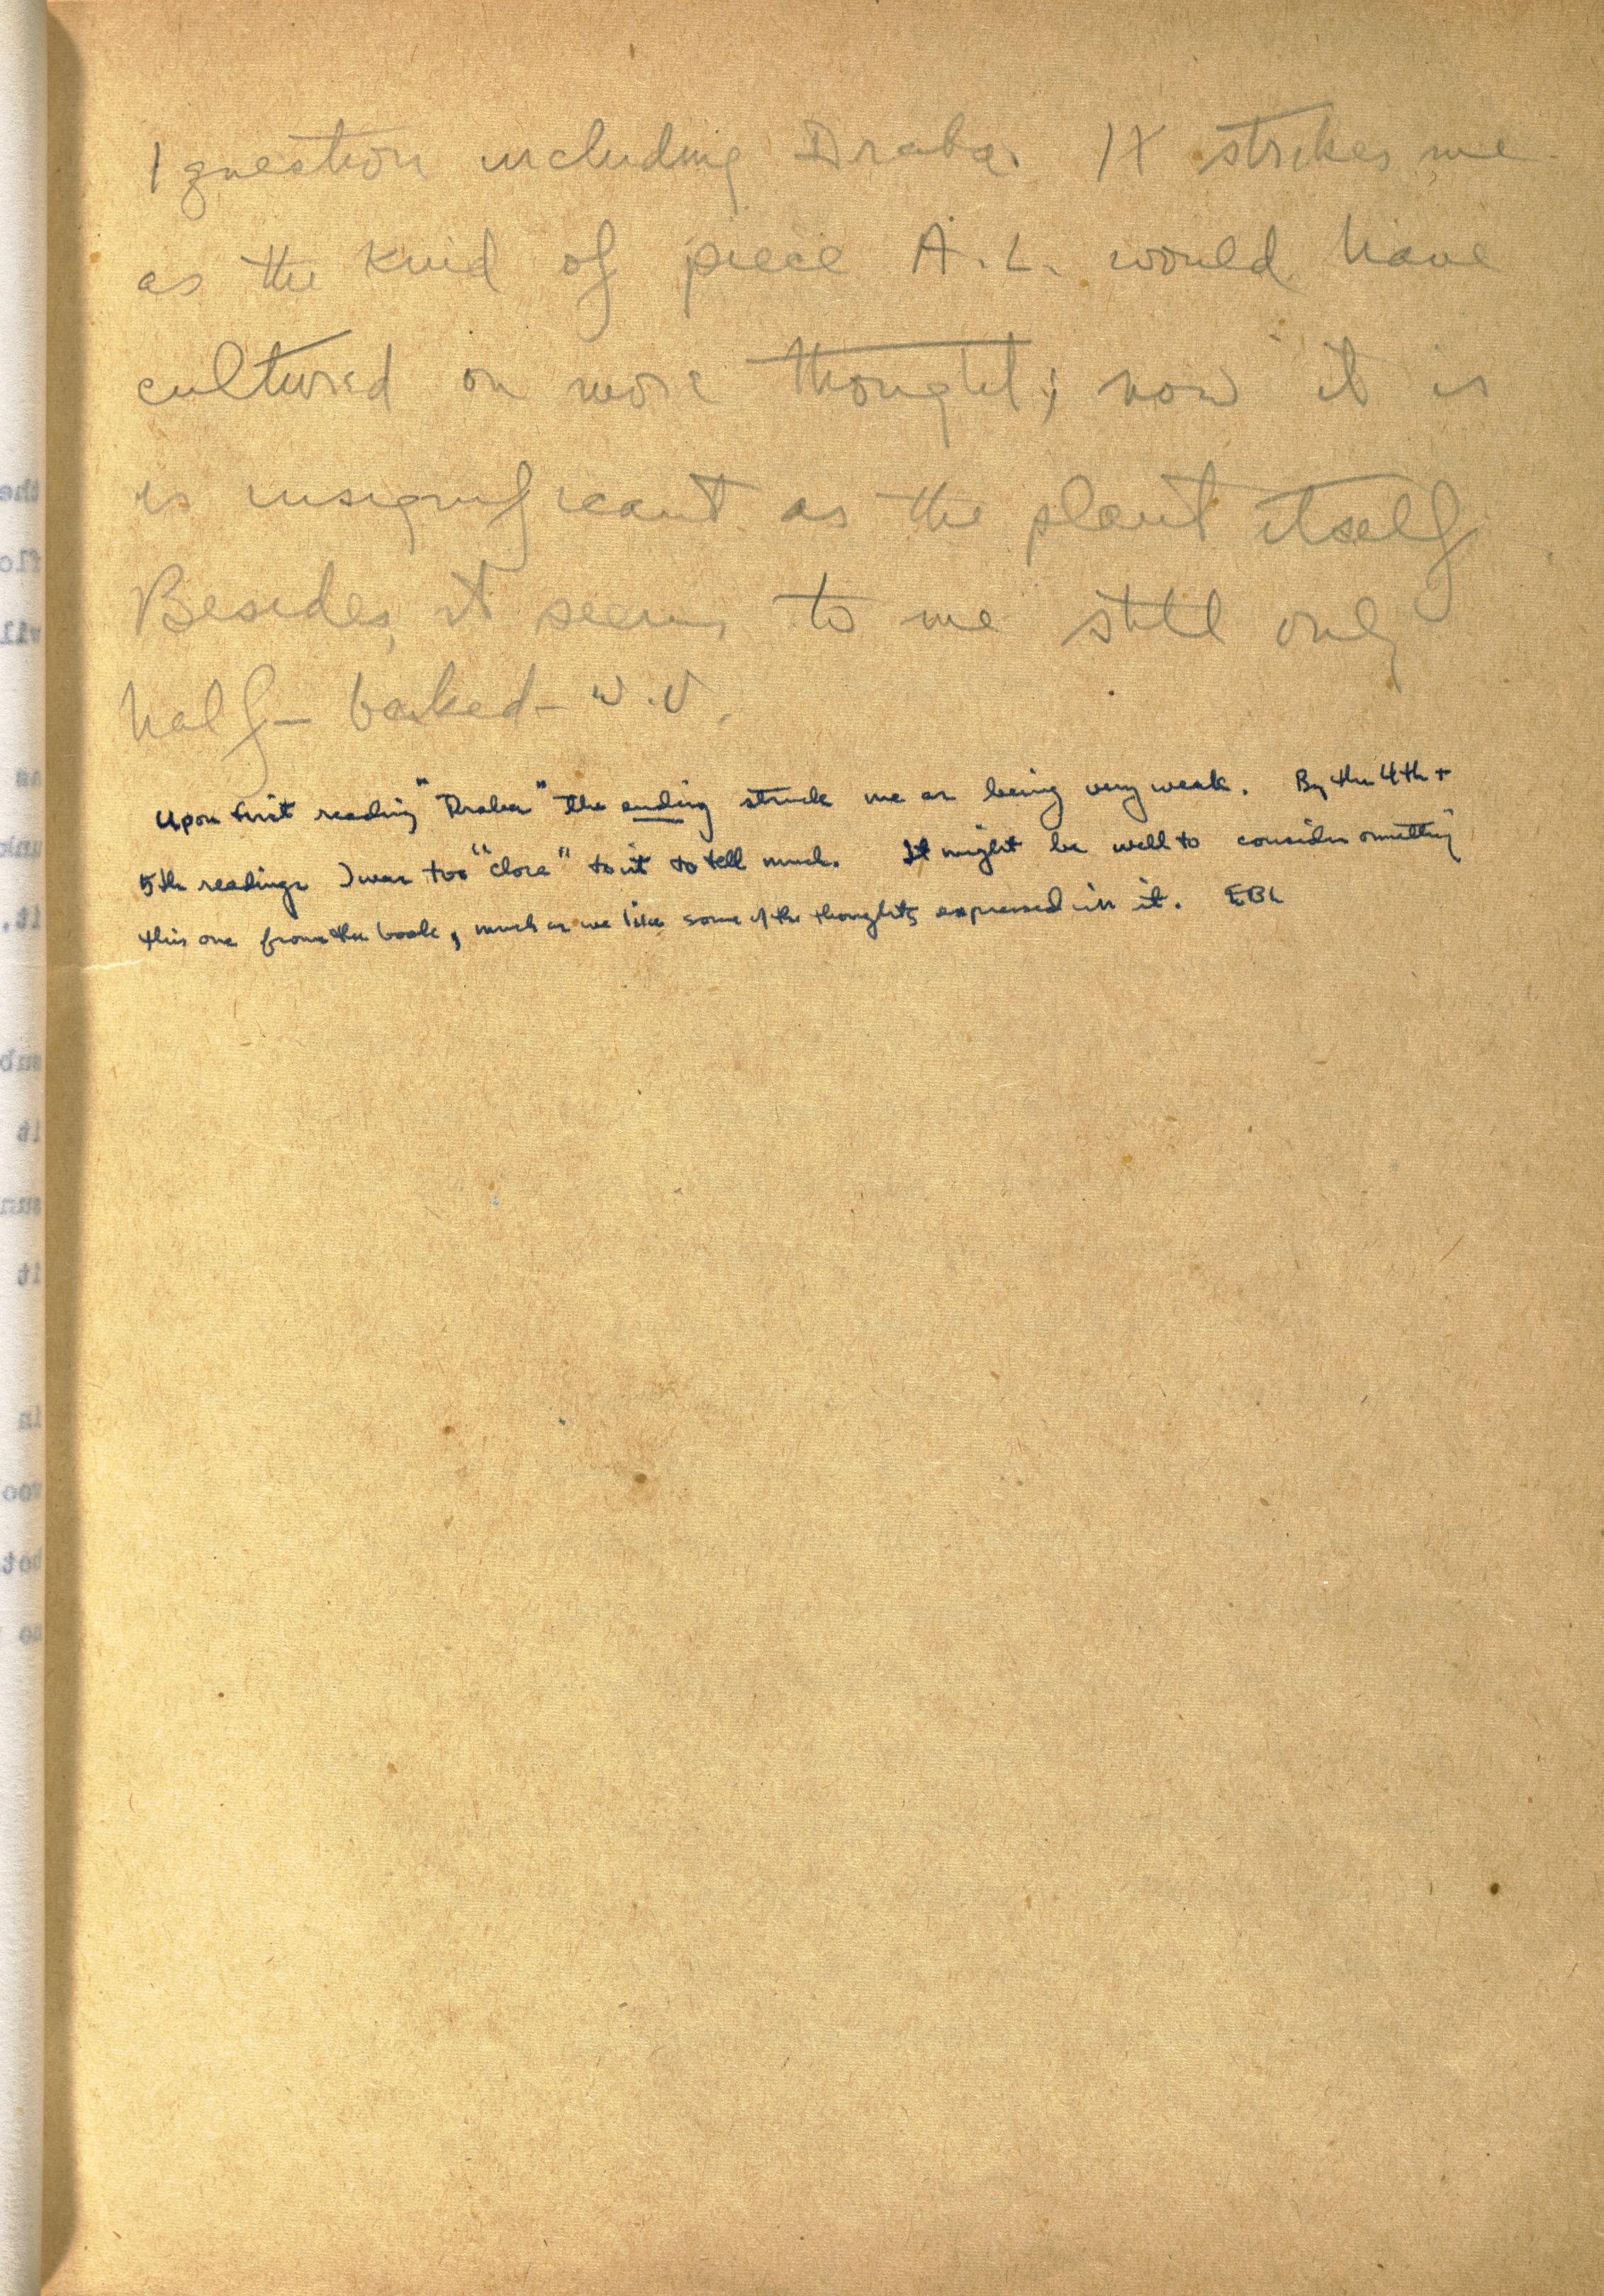 I question including Draba. It strikes me
as the kind of piece A.L. would have
cultured on more thought; now it is
as insignificant as the plant itself
Besides, it seems to me still only
half-baked - W.V.
Upon first reading "Draba" the ending struck me as being very weak. By the 4th +
5th readings I was too "close" to it to tell much. It might be well to consider omitting
this one from the book, much as we like some of the thoughts expressed in it. EBL
the
flo
wil
as
unk
it.
sub
it
sun
it
in
woo
bet
no